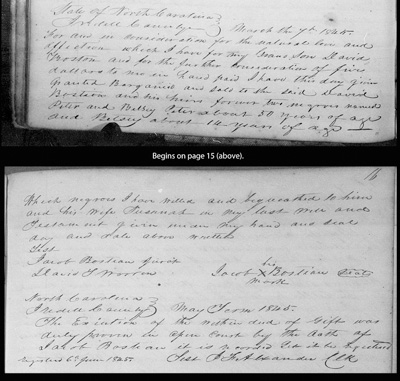 State of North Carolina
Iredell County March the 7th 1845.
For and in consideration for the natural love and
affection which I have for my Grand Son David
Bostian and for the further consideration of five
dollars to me in hand paid I have this day given
granted Bargained and Sold to the said David
Bostian and his heirs forever two negroes named
Peter and Betsey Peter about 50 years of age
and Betsey about 14 years of age I
Begins on page 15 (above).
16
Which negroes I have willed and bequeathed to him
and his wife Susannah in my last will and
Testament given under my hand and seal
day and date above written
Test
Jacob Bostian Jurat his
David T Jacob X Bostian Seal
mark
North Carolina
Iredell County May Term 1845.
The Execution of the within deed of Gift was
duly proven in open court by the oath of
Jacob Bostian it is ordered to be Registered
Registered 6th June 1845. Test Alexander Clk